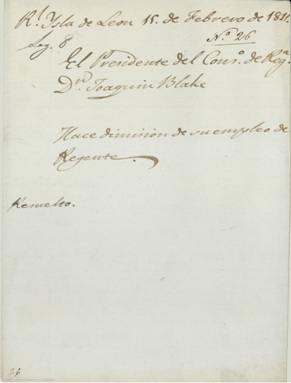 Rl. Isla de Leon 15. de Febrero de 1811.
Leg. 8
No. 26
El Presidente del Cons.o de Reg.a
D.n Joaquin Blake
Hace dimision de su empleo de
Regente.
Remelto.
26